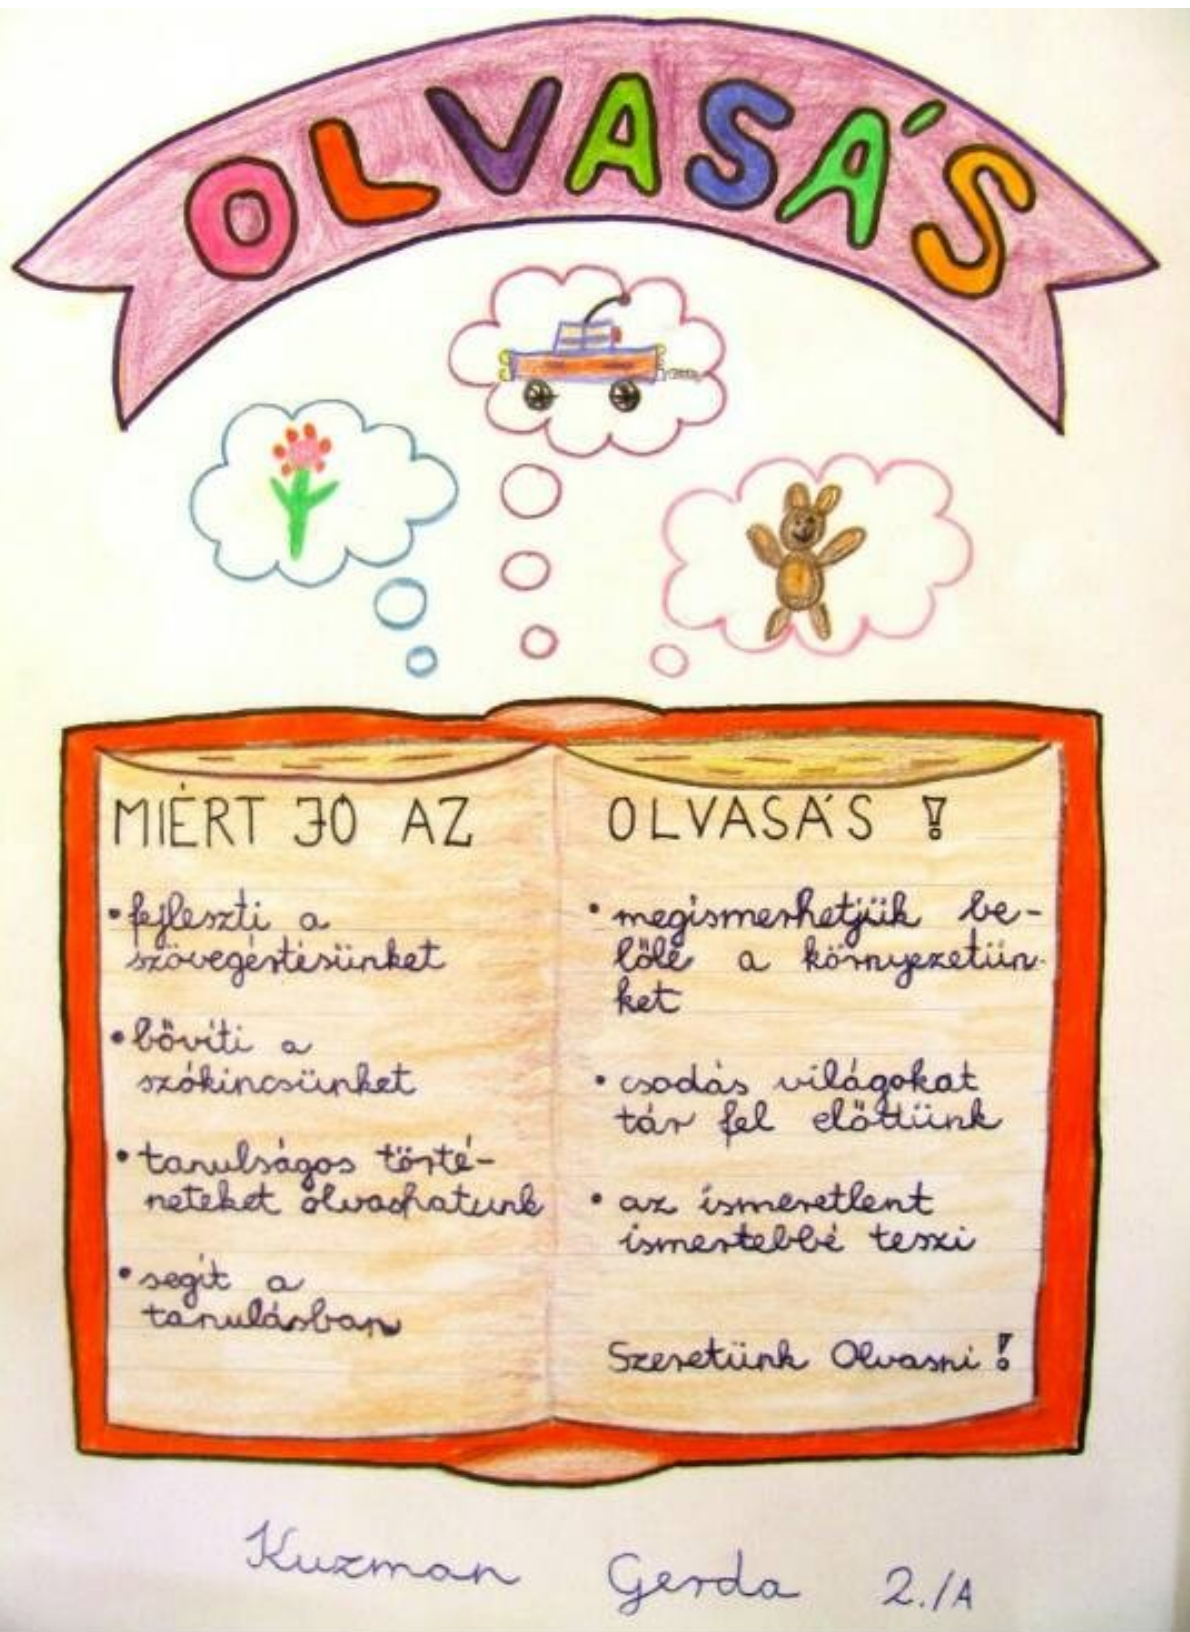 OLVASÁS
MIÉRT JÓ AZ
• fejleszti a
szövegértésünket
• bővíti a
szókincsünket
• tanulságos törté-
neteket olvashatunk
• segít a
tanulásban
OLVASÁS !
• megismerhetjük be-
lőle a környezetün-
ket
• csodás világokat
tár fel előttünk
• az ismeretlent
ismertebbé teszi
Szeretünk Olvasni !
Kuzman Gerda 2./A